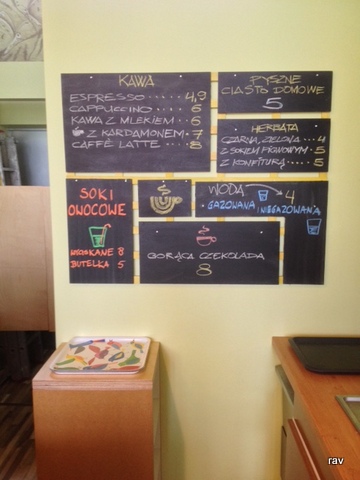 KAWA
ESPRESSO ···· 4,9
CAPPUCCINO ·· 6
KAWA Z MLEKIEM ·· 6
Z KARDAMONEM · 7
CAFFÈ LATTE ··· 8
PYSZNE
CIASTO DOMOWE
5
HERBATA
CZARNA, ZIELONA ··· 4
Z SOKIEM PIGWOWYM · 5
Z KONFITURĄ ···· 5
SOKI
OWOCOWE
WYCISKANE 8
BUTELKA 5
WODA
4
GAZOWANA / NIEGAZOWANA
GORĄCA CZEKOLADA
8
rav